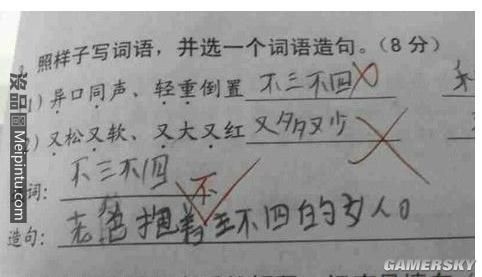 照样子写词语，并选一个词语造句。(8分)
1) 异口同声、轻重倒置 不三不四
2) 又松又软、又大又红 又多又少
词: 不三不四
不
造句: 老爸 不四的女人。
洛品图 Meipintu.com
GAMERSKY